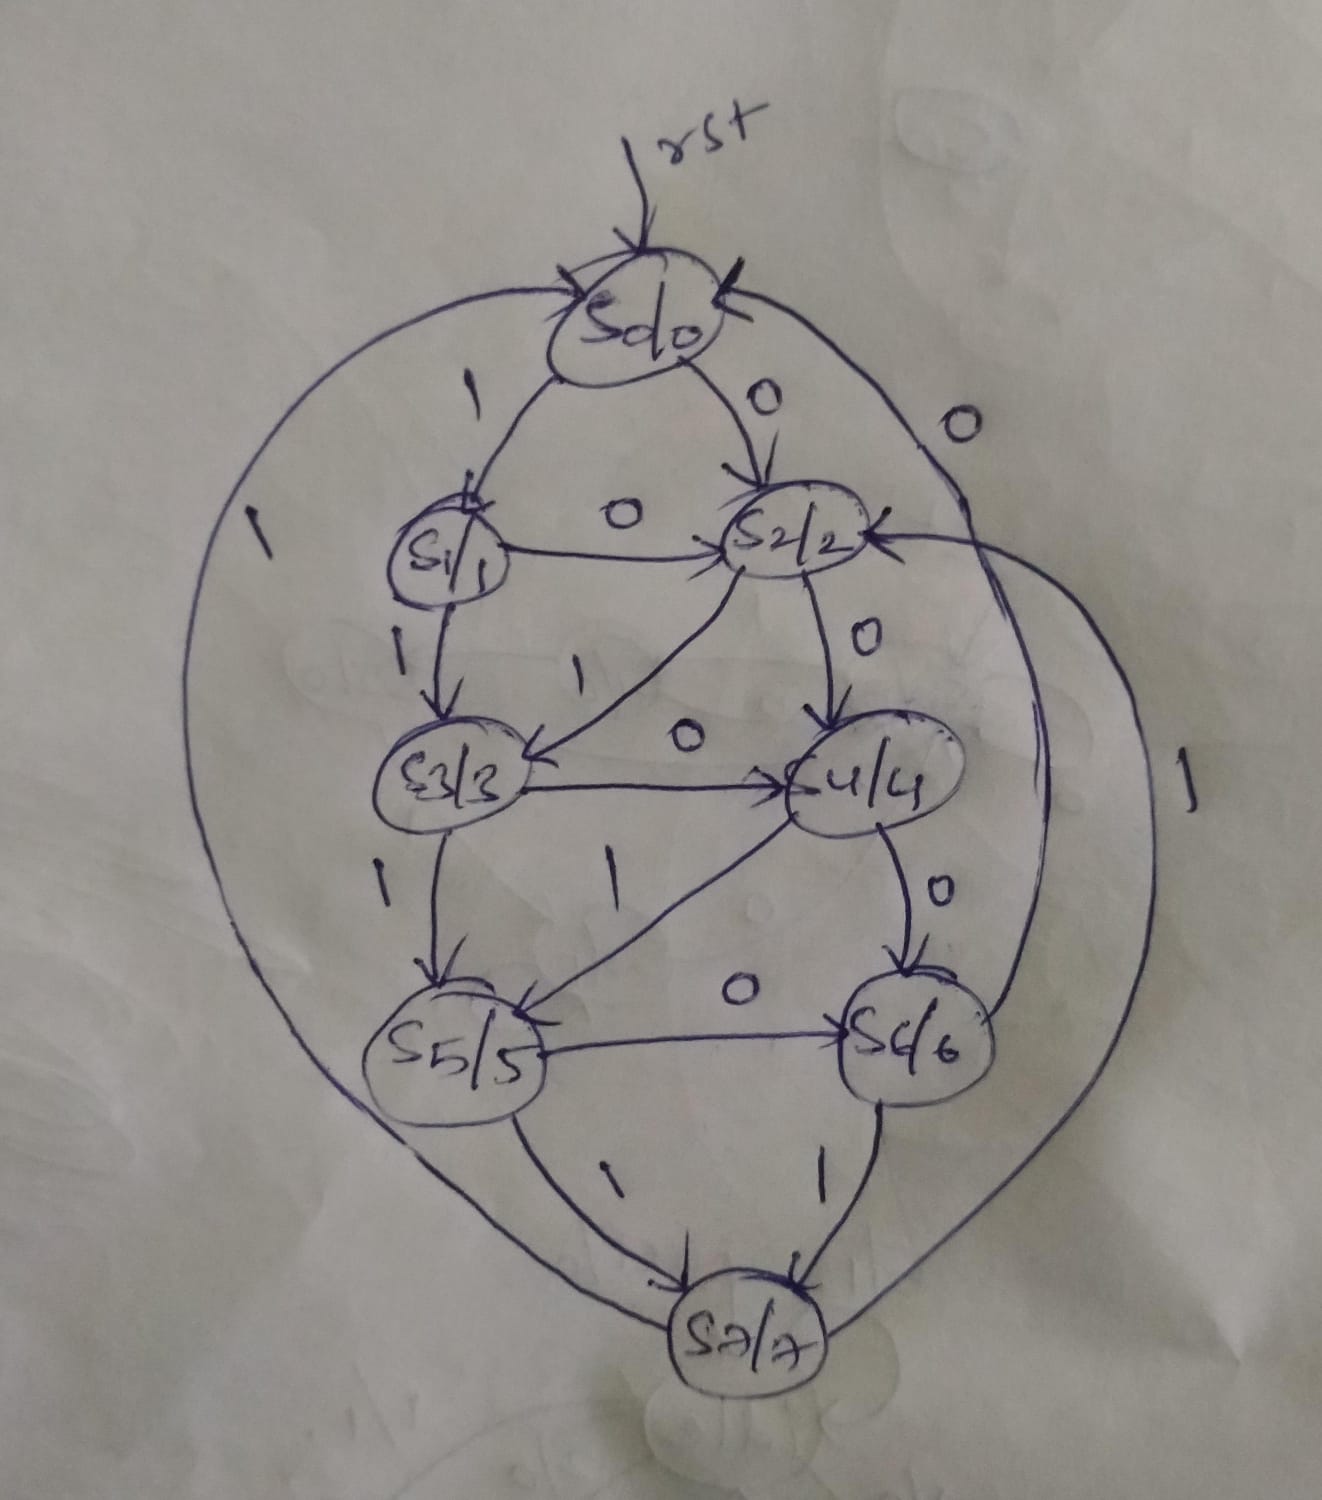 rst
S0/0
1 0
0
1
0
S1/1 S2/2
1 1 0
0
1
S3/3 S4/4
1 1 0
0
S5/5 S6/6
1 1
S7/7